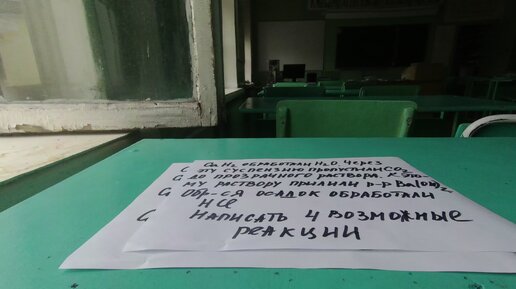 CaH₂ ОБРАБОТАЛИ H₂O. ЧЕРЕЗ
ЭТУ СУСПЕНЗИЮ ПРОПУСТИЛИ CO₂
ДО ПРОЗРАЧНОГО РАСТВОРА. К ЭТО-
МУ РАСТВОРУ ПРИЛИЛИ р-р Ba(OH)₂
ОБР-СЯ ОСАДОК ОБРАБОТАЛИ
HCl
НАПИСАТЬ 4 ВОЗМОЖНЫЕ
РЕАКЦИИ